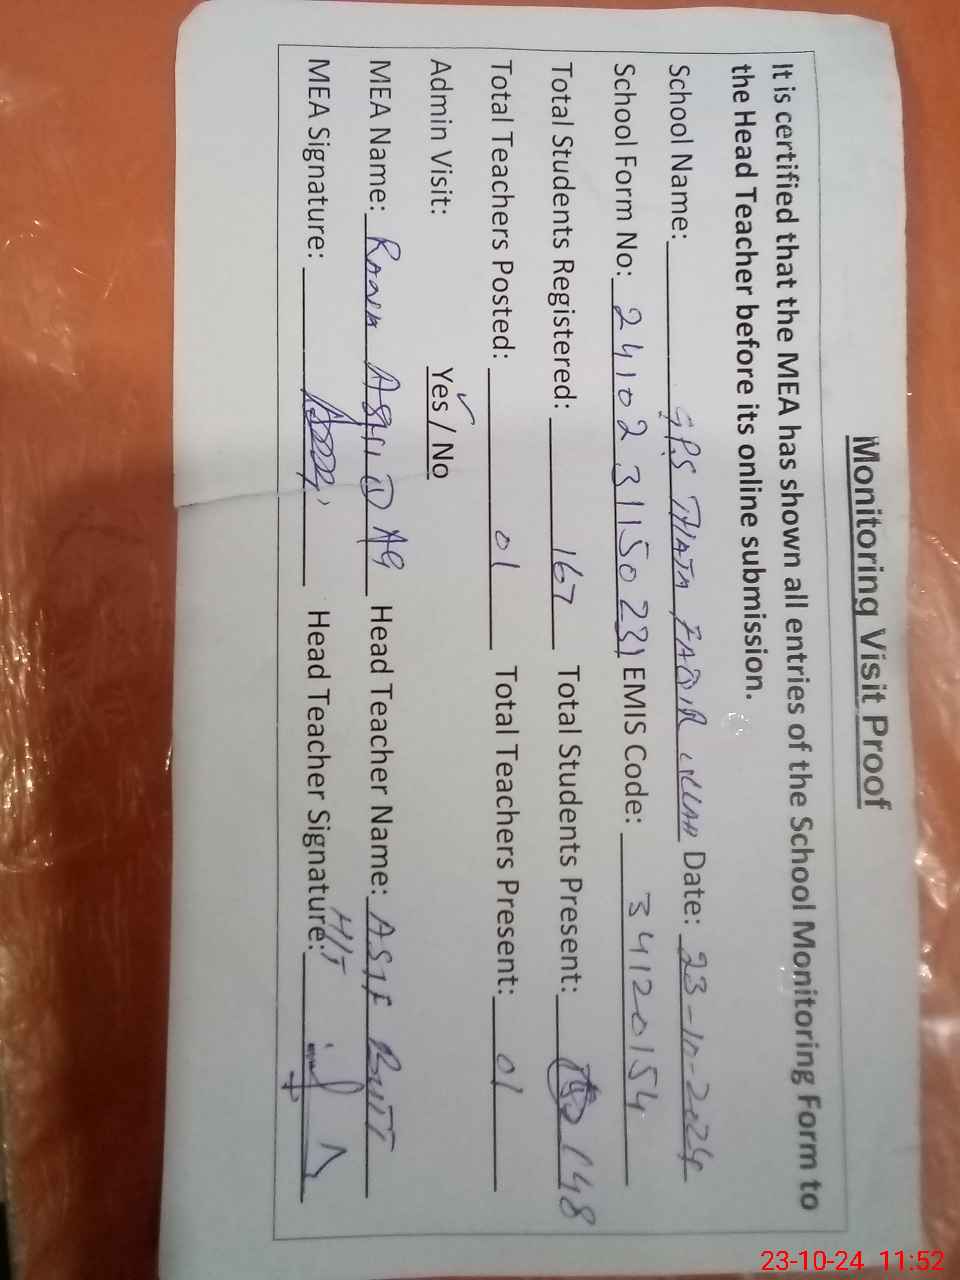 Monitoring Visit Proof
It is certified that the MEA has shown all entries of the School Monitoring Form to
the Head Teacher before its online submission.
School Name: GPS FAQIR Date: 23-10-2024
School Form No: EMIS Code: 34120154
Total Students Registered: 167 Total Students Present: 148
Total Teachers Posted: 01 Total Teachers Present: 01
Admin Visit: Yes / No
MEA Name: Head Teacher Name: ASIF BUTT
MEA Signature: Head Teacher Signature: H/T
23-10-24 11:52